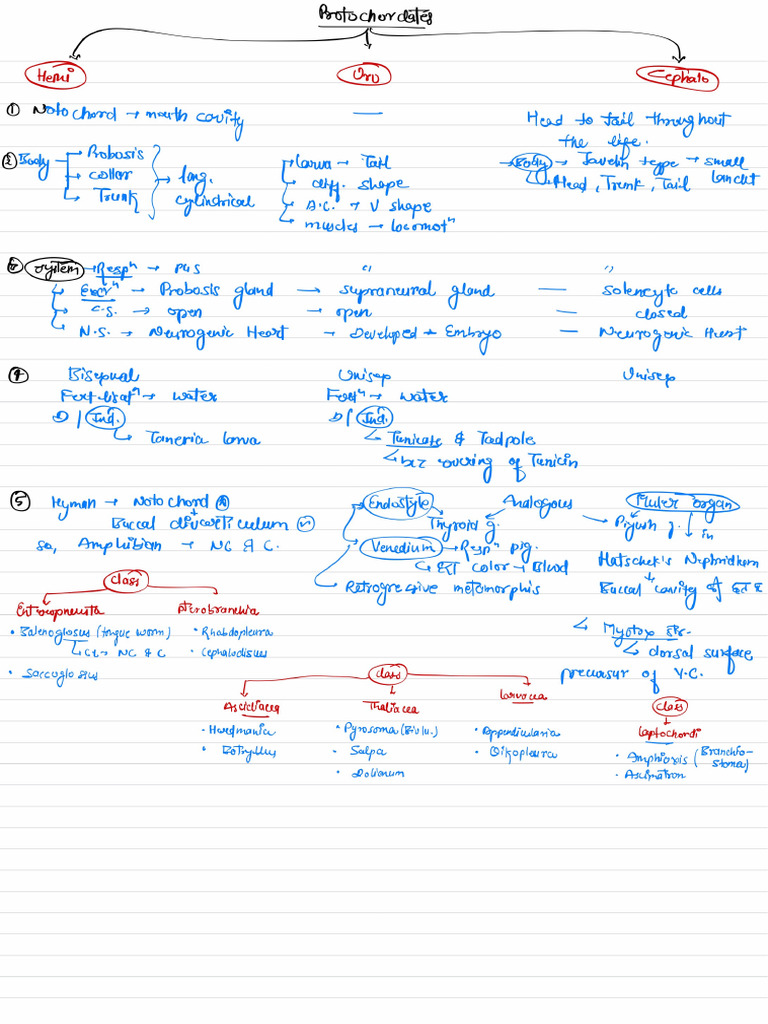 Protochordates
Hemi Uro Cephalo
① Notochord → mouth cavity — Head to tail throughout
the life.
② Body → Probosis
→ collar
→ Trunk
→ long.
cylindrical
larva → Tail
diff. shape
A.C. → V shape
muscles → locomotⁿ
→ Body → Javelin type → small
lancet
Head, Trunk, Tail
System → Respⁿ → PGS " "
Excrⁿ → Probosis gland → supraneural gland — Solenocyte cells
C.S. → open → open — closed
N.S. → Neurogenic Heart → Developed → Embryo — Neurogenic Heart
④ Bisexual Unisep Unisep
Fertilisatⁿ → water Fertⁿ → water
D / Ind. D / Ind.
↳ Taneria larva ↳ Tunicate & Tadpole
↳ bcz covering of Tunicin
⑤ Hyman → Notochord
Buccal diverticulum
so, Amphibian → NC & C.
Endostyle Analogous
Thyroid g.
Venedium → Respⁿ pig.
↳ हरा color → Blood
Retrogressive metamorphis
Muler organ
in
Hatschek's Nephridium
Buccal cavity में
Myotox str.
↳ dorsal surface
precusur of V.C.
Classi
Enteropneusta Pterobranchia
• Balenoglosus (tongue worm) • Rhabdopleura
↳ CL → NC & C • Cephalodisus
• Saccoglosius
class
Ascidiacea Thaliacea Larvacea
• Herdmania • Pyrosoma (Biolu.) • Appendicularia
• Botryllus • Salpa • Oikopleura
• Doliolum
class
Leptochordi
• Amphioxis (Branchio-
stoma)
• Asymatron